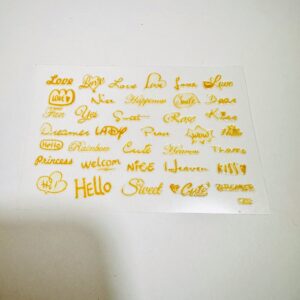 Love Love Love Love Love
LOVE Nice Happiness Smile Dear
Fun Yes Sweet Rose Kiss
Dreamer LADY Prince WOW
Hello Rainbow Cute Heaven
Princess Welcom NICE Heaven KISS
Hi Hello Sweet Cute